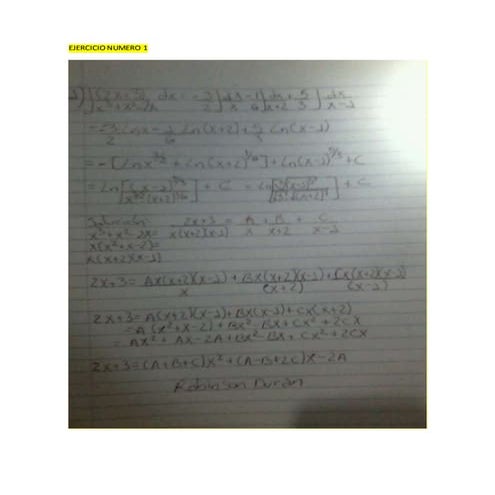 EJERCICIO NUMERO 1
∫ (2x+3) / x³+x²-2x dx = -3/2 ∫ dx/x - 1/6 ∫ dx/x+2 + 5/3 ∫ dx/x-1
= -3/2 Ln x - 1/6 Ln (x+2) + 5/3 Ln (x-1)
= -[Ln x^3/2 + Ln (x+2)^1/6] + Ln (x-1)^5/3 + C
= Ln [(x-1)^5/3 / x^3/2 (x+2)^1/6] + C = Ln + C
Solución: 2x+3 / x(x+2)(x-1) = A/x + B/x+2 + C/x-1
x³+x²-2x=
x(x²+x-2)=
x(x+2)(x-1)
2x+3= Ax(x+2)(x-1)/x + Bx(x+2)(x-1)/(x+2) + Cx(x+2)(x-1)/(x-1)
2x+3= A(x+2)(x-1)+Bx(x-1)+Cx(x+2)
= A(x²+x-2)+Bx²-Bx+Cx²+2Cx
= Ax²+Ax-2A+Bx²-Bx+Cx²+2Cx
2x+3=(A+B+C)x²+(A-B+2C)x-2A
Robinson Duran